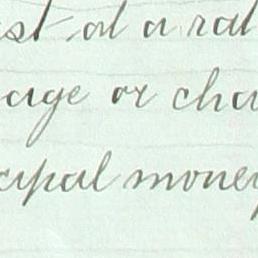 est at a rat
age or cha
cipal money